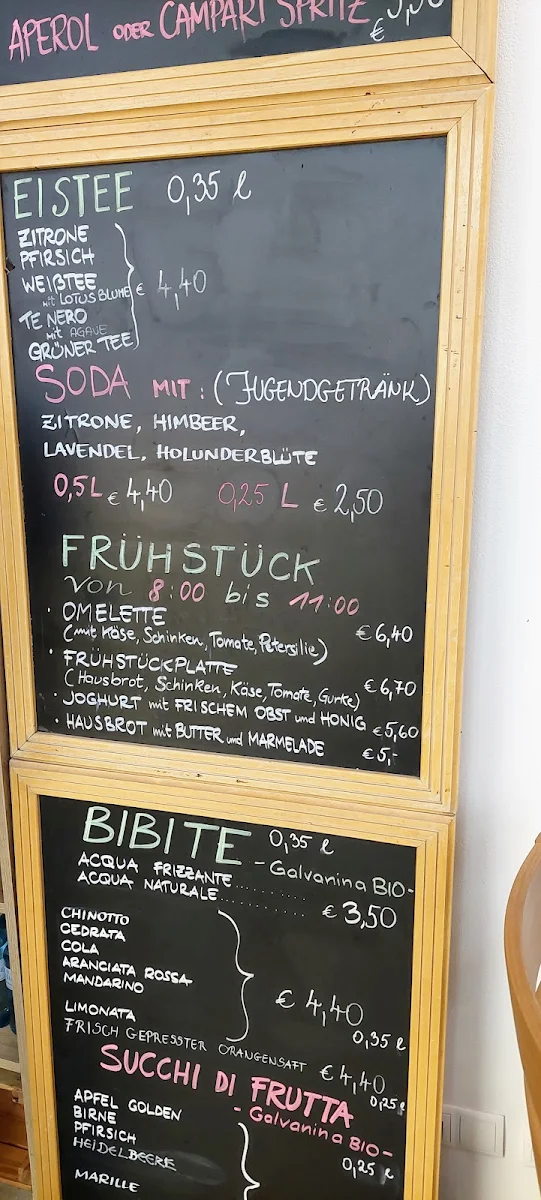 APEROL ODER CAMPARI SPRITZ €
EISTEE 0,35 l
ZITRONE
PFIRSICH
WEIßTEE
mit LOTUS BLUME
€ 4,40
TE NERO
mit AGAVE
GRÜNER TEE
SODA MIT: (JUGENDGETRÄNK)
ZITRONE, HIMBEER,
LAVENDEL, HOLUNDERBLÜTE
0,5L € 4,40 0,25 L € 2,50
FRÜHSTÜCK
von 8:00 bis 11:00
· OMELETTE
(mit Käse, Schinken, Tomate, Petersilie) € 6,40
· FRÜHSTÜCKPLATTE
(Hausbrot, Schinken, Käse, Tomate, Gurke) € 6,70
· JOGHURT mit FRISCHEM OBST und HONIG € 5,60
· HAUSBROT mit BUTTER und MARMELADE € 5,-
BIBITE 0,35 l
- Galvanina BIO -
ACQUA FRIZZANTE..........
ACQUA NATURALE.......... € 3,50
CHINOTTO
CEDRATA
COLA
ARANCIATA ROSSA
MANDARINO
€ 4,40
0,35 l
LIMONATA
FRISCH GEPRESSTER ORANGENSAFT € 4,40
0,25 l
SUCCHI DI FRUTTA
- Galvanina BIO -
0,25 l
APFEL GOLDEN
BIRNE
PFIRSICH
HEIDELBEERE
MARILLE